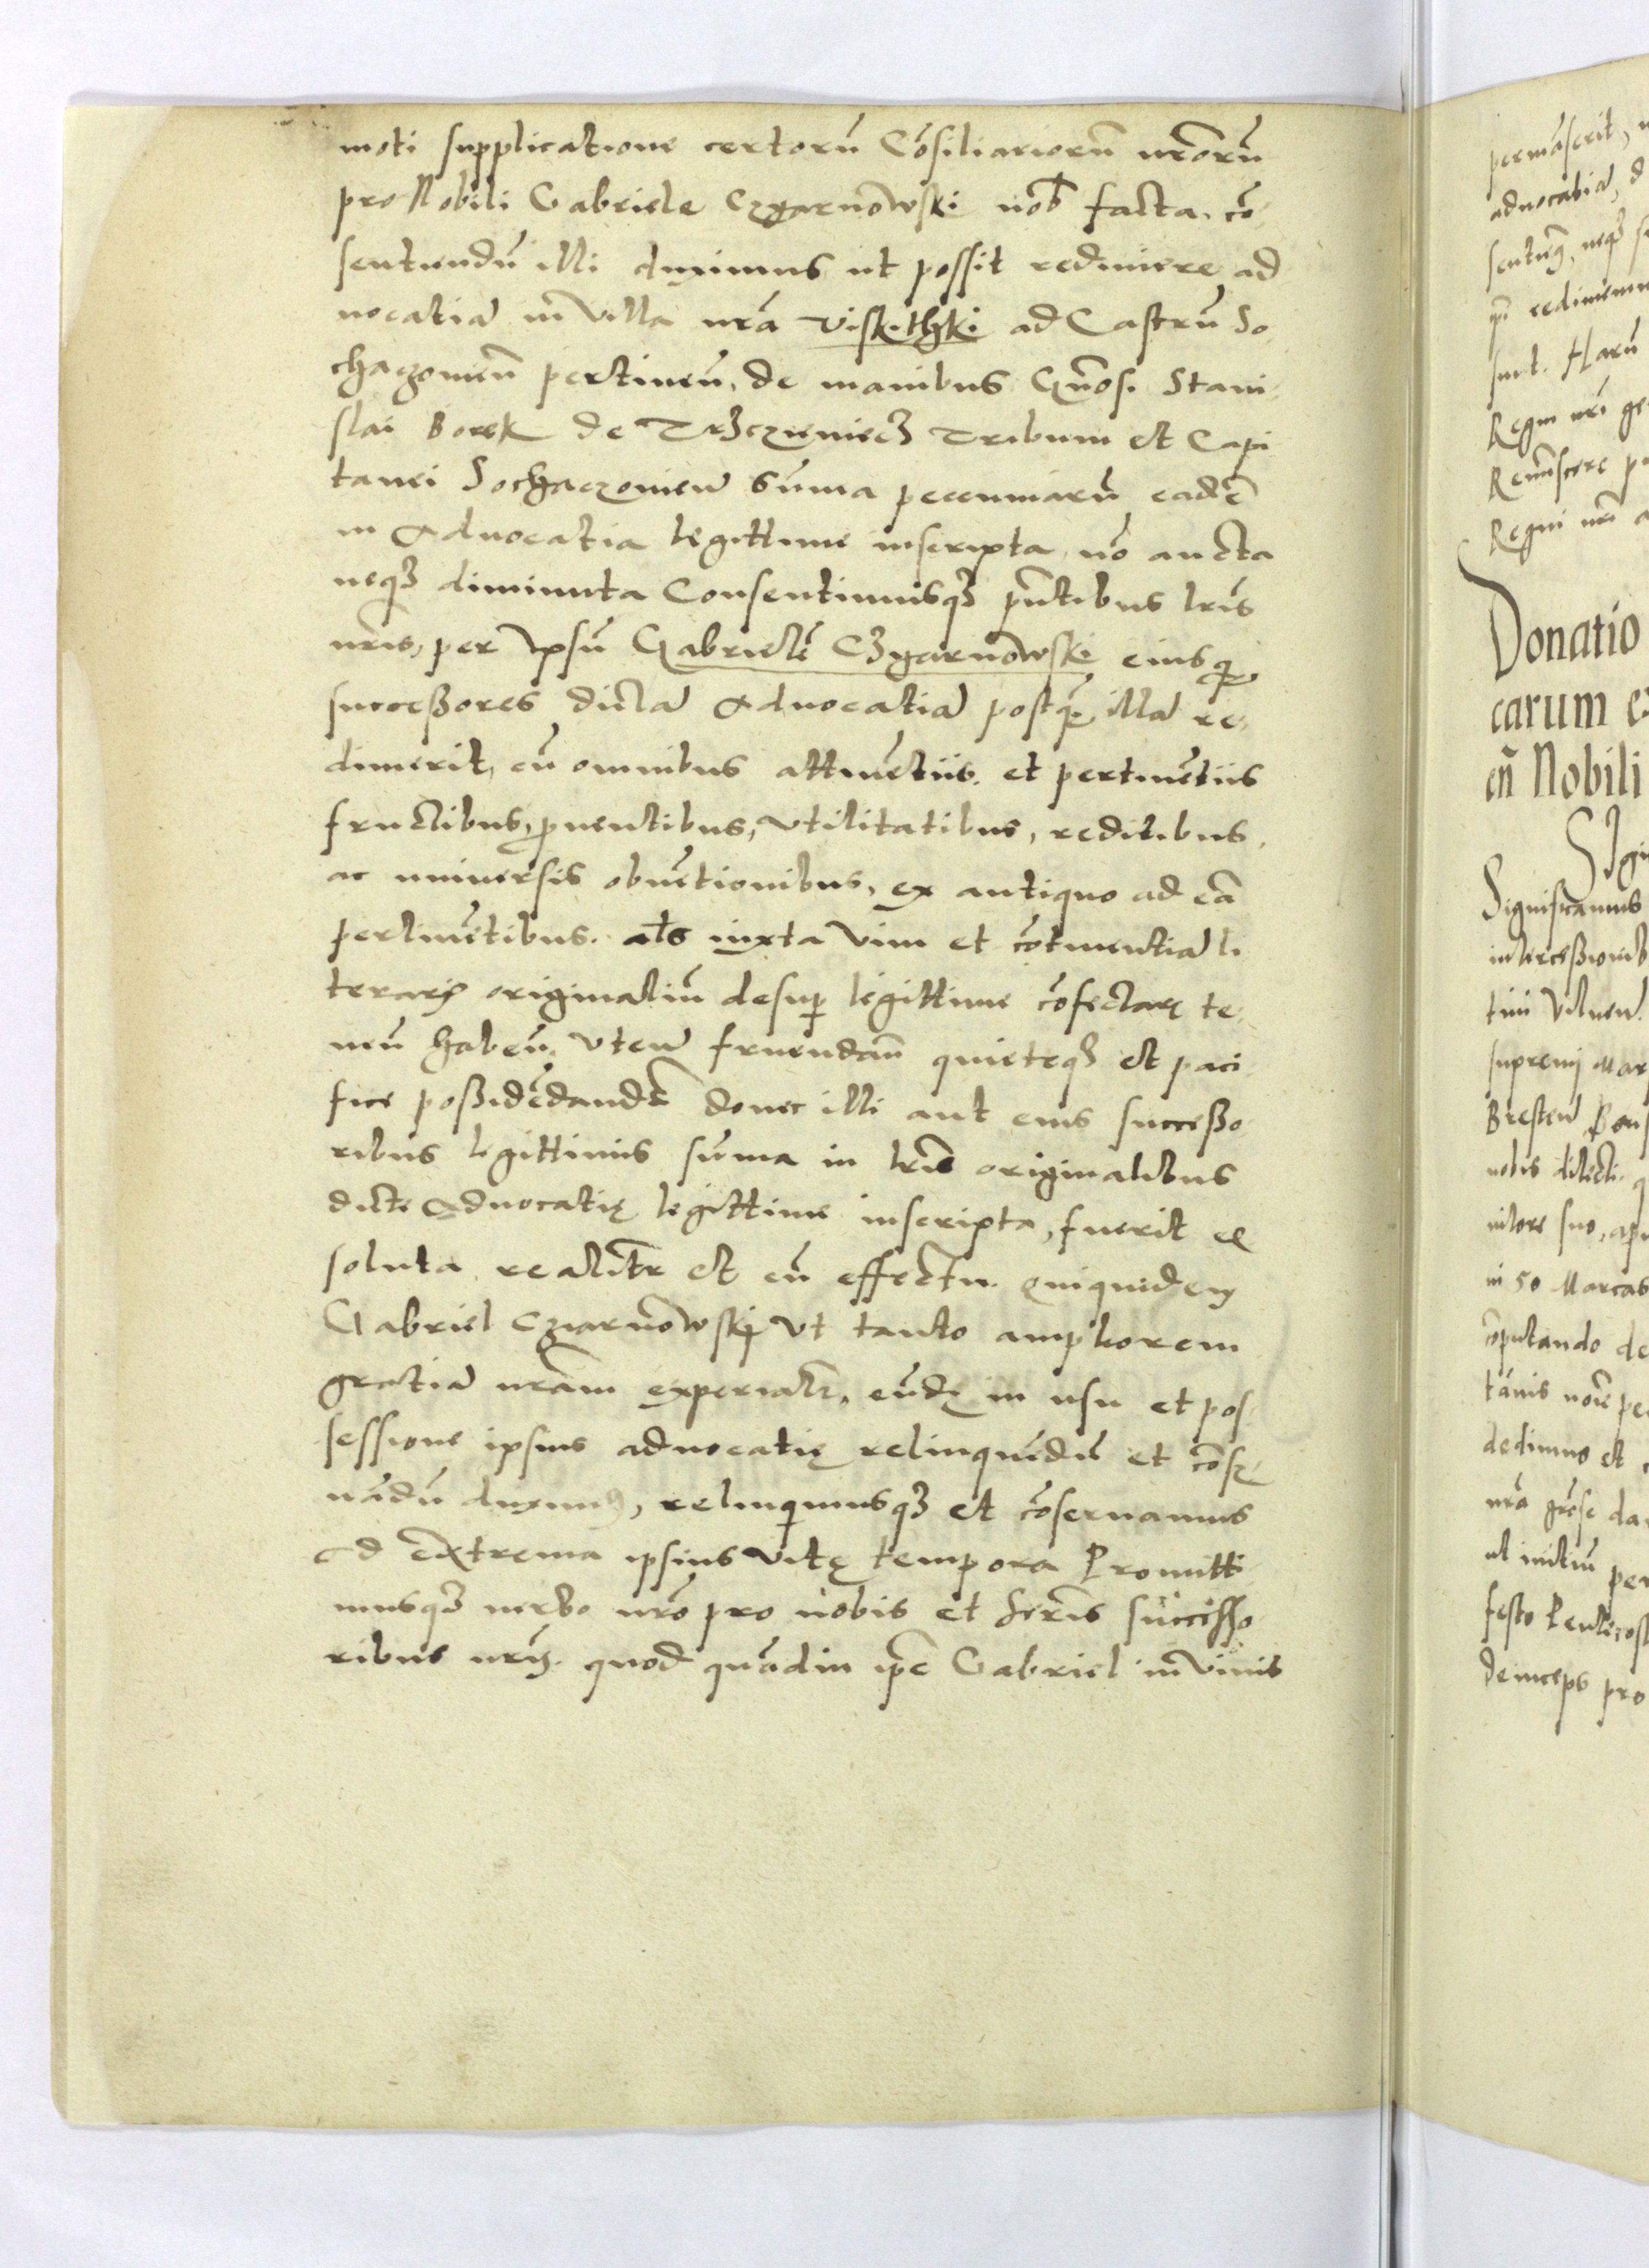 moti supplicatione certorũ Cõsiliariorũ nr̃orũ
pro Nobili Gabriele Czyarnowski nob facta. cõ
sentiendũ illi duximus ut possit redimere ad
uocatiã in Villa nr̃a Viskithki ad Castrũ So
chaczouien̄ pertinen̄, de manibus Gñosi Stani
slai Borek de Trzczieniecz Tribuni et Capi
tanei Sochaczouien̄ Sum̃a pecuniarũ eadẽ
in Aduocatia legittime inscripta, nõ aucta
neq3 diminuta Consentimusq3 pñtibus lr̃is
nr̃is, per ipsũ Gabrielẽ Czyarnowski eiusq̃
successores dictã Aduocatiã postq̃ illã re
dimerit, cũ omnibus attinẽtiis. et pertinẽtiis
fructibus, ꝓuentibus, Vtilitatibus, reditibus,
ac uniuersis obuẽtionibus, ex antiquo ad eã
pertinẽtibus. als iuxta Vim et cõtinentiã li
terarꝝ originaliũ desuꝑ legittime cõfectarꝝ te
nen̄ haben̄, Vten̄ fruendam̄ quieteq3 et paci
fice possidẽdandẽ donec illi aut eius successo
ribus legittimis sum̃a in lr̃is originalibus
dicte Aduocatię legittime inscripta, fuerit ex
soluta realitr̃ et cũ effectu. Quiquidem
Gabriel Czarnowskj Vt tanto ampliorem
gratiã nr̃am experiatr̃, eũdẽ in usu et pos
sessione ipsius aduocatię relinquẽdũ et cõser
uãdũ duximꝰ, relinquimusq3 et cõseruamus
ad extrema ipsius Vitę tempora Promitti
musq3 uerbo nr̃o pro nobis et Ser̃is successo
ribus nr̃is. quod quãdiu ip̃e Gabriel in Viuis
permãserit,
aduocatiã,
redimen
sunt. Harũ
Regni nr̃i
Reminiscere
Regni nr̃i
Donatio
carum
cñ Nobili
Significamus
intercessionib
tini Vilnen̄.
supremj Mar
Bresten̄
nobis dilecti.
nitore suo,
in 50 Marcas
cõputando de
dedimus et
nr̃a
ut initiũ
festo Pentecost
deinceps pro